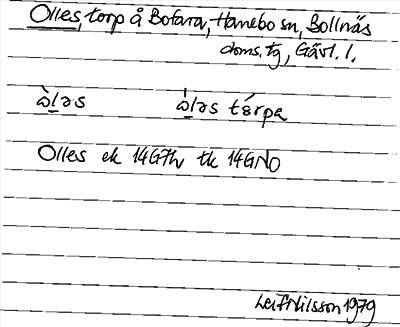 Olles, torp å Bofara, Hanebo sn, Bollnäs
doms. tg, Gävl. l.
òləs òləs tórpa
Olles ek 14G7h tk 14GNO
Leif Nilsson 1979